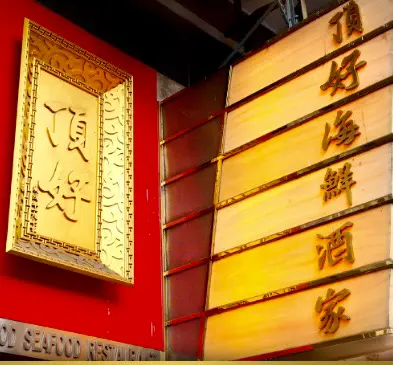 頂好
頂好海鮮酒家
OD SEAFOOD RESTAU